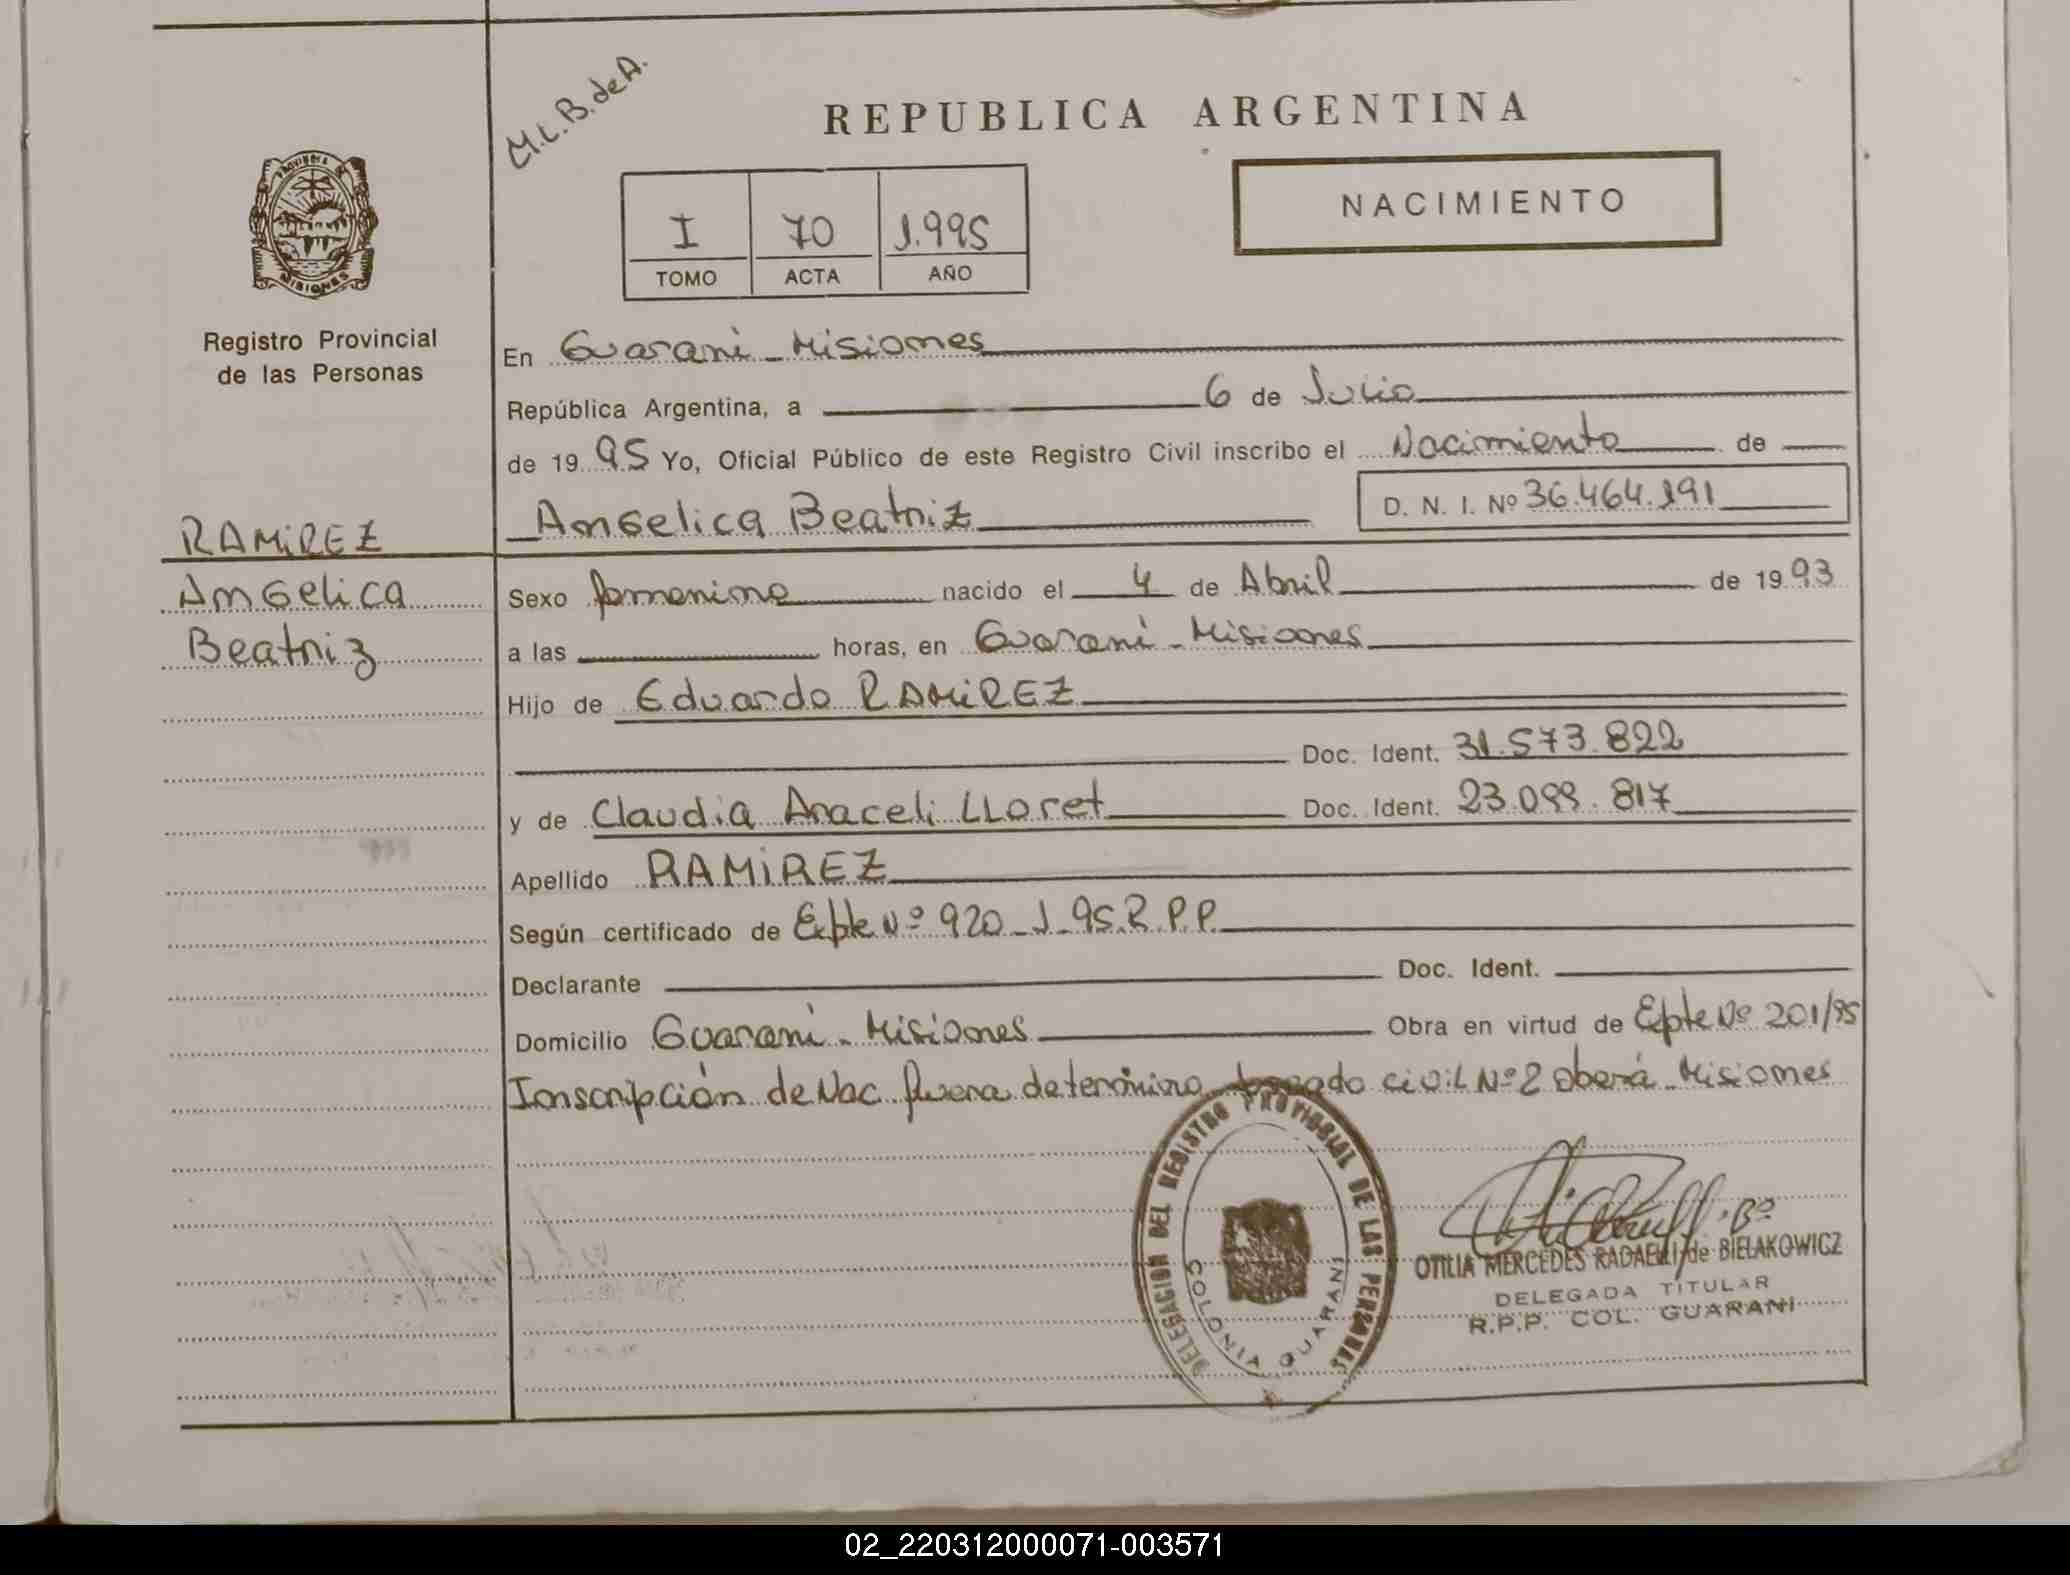 M.L.B. de A.
REPUBLICA ARGENTINA
PROVINCIA DE
MISIONES
Registro Provincial
de las Personas
I 70 1.995
TOMO ACTA AÑO
NACIMIENTO
En Guaraní - Misiones
República Argentina, a 6 de Julio
de 19 95 Yo, Oficial Público de este Registro Civil inscribo el Nacimiento de
Angelica Beatriz D. N. I. Nº 36.464.191
RAMIREZ
Angelica
Beatriz
Sexo femenino nacido el 4 de Abril de 19 93
a las horas, en Guaraní - Misiones
Hijo de Eduardo RAMIREZ
Doc. Ident. 31.573.822
y de Claudia Araceli LLoret Doc. Ident. 23.099.817
Apellido RAMIREZ
Según certificado de Expte Nº 920-J-95.R.P.P.
Declarante Doc. Ident.
Domicilio Guaraní - Misiones Obra en virtud de Expte Nº 201/95
Inscripción de Nac. fuera de término Juzgado civil Nº 2 Oberá - Misiones
DELEGACION DEL REGISTRO PROVINCIAL DE LAS PERSONAS
COLONIA GUARANI
OTILIA MERCEDES RADAELLI de BIELAKOWICZ
DELEGADA TITULAR
R.P.P. COL. GUARANI
02_220312000071-003571